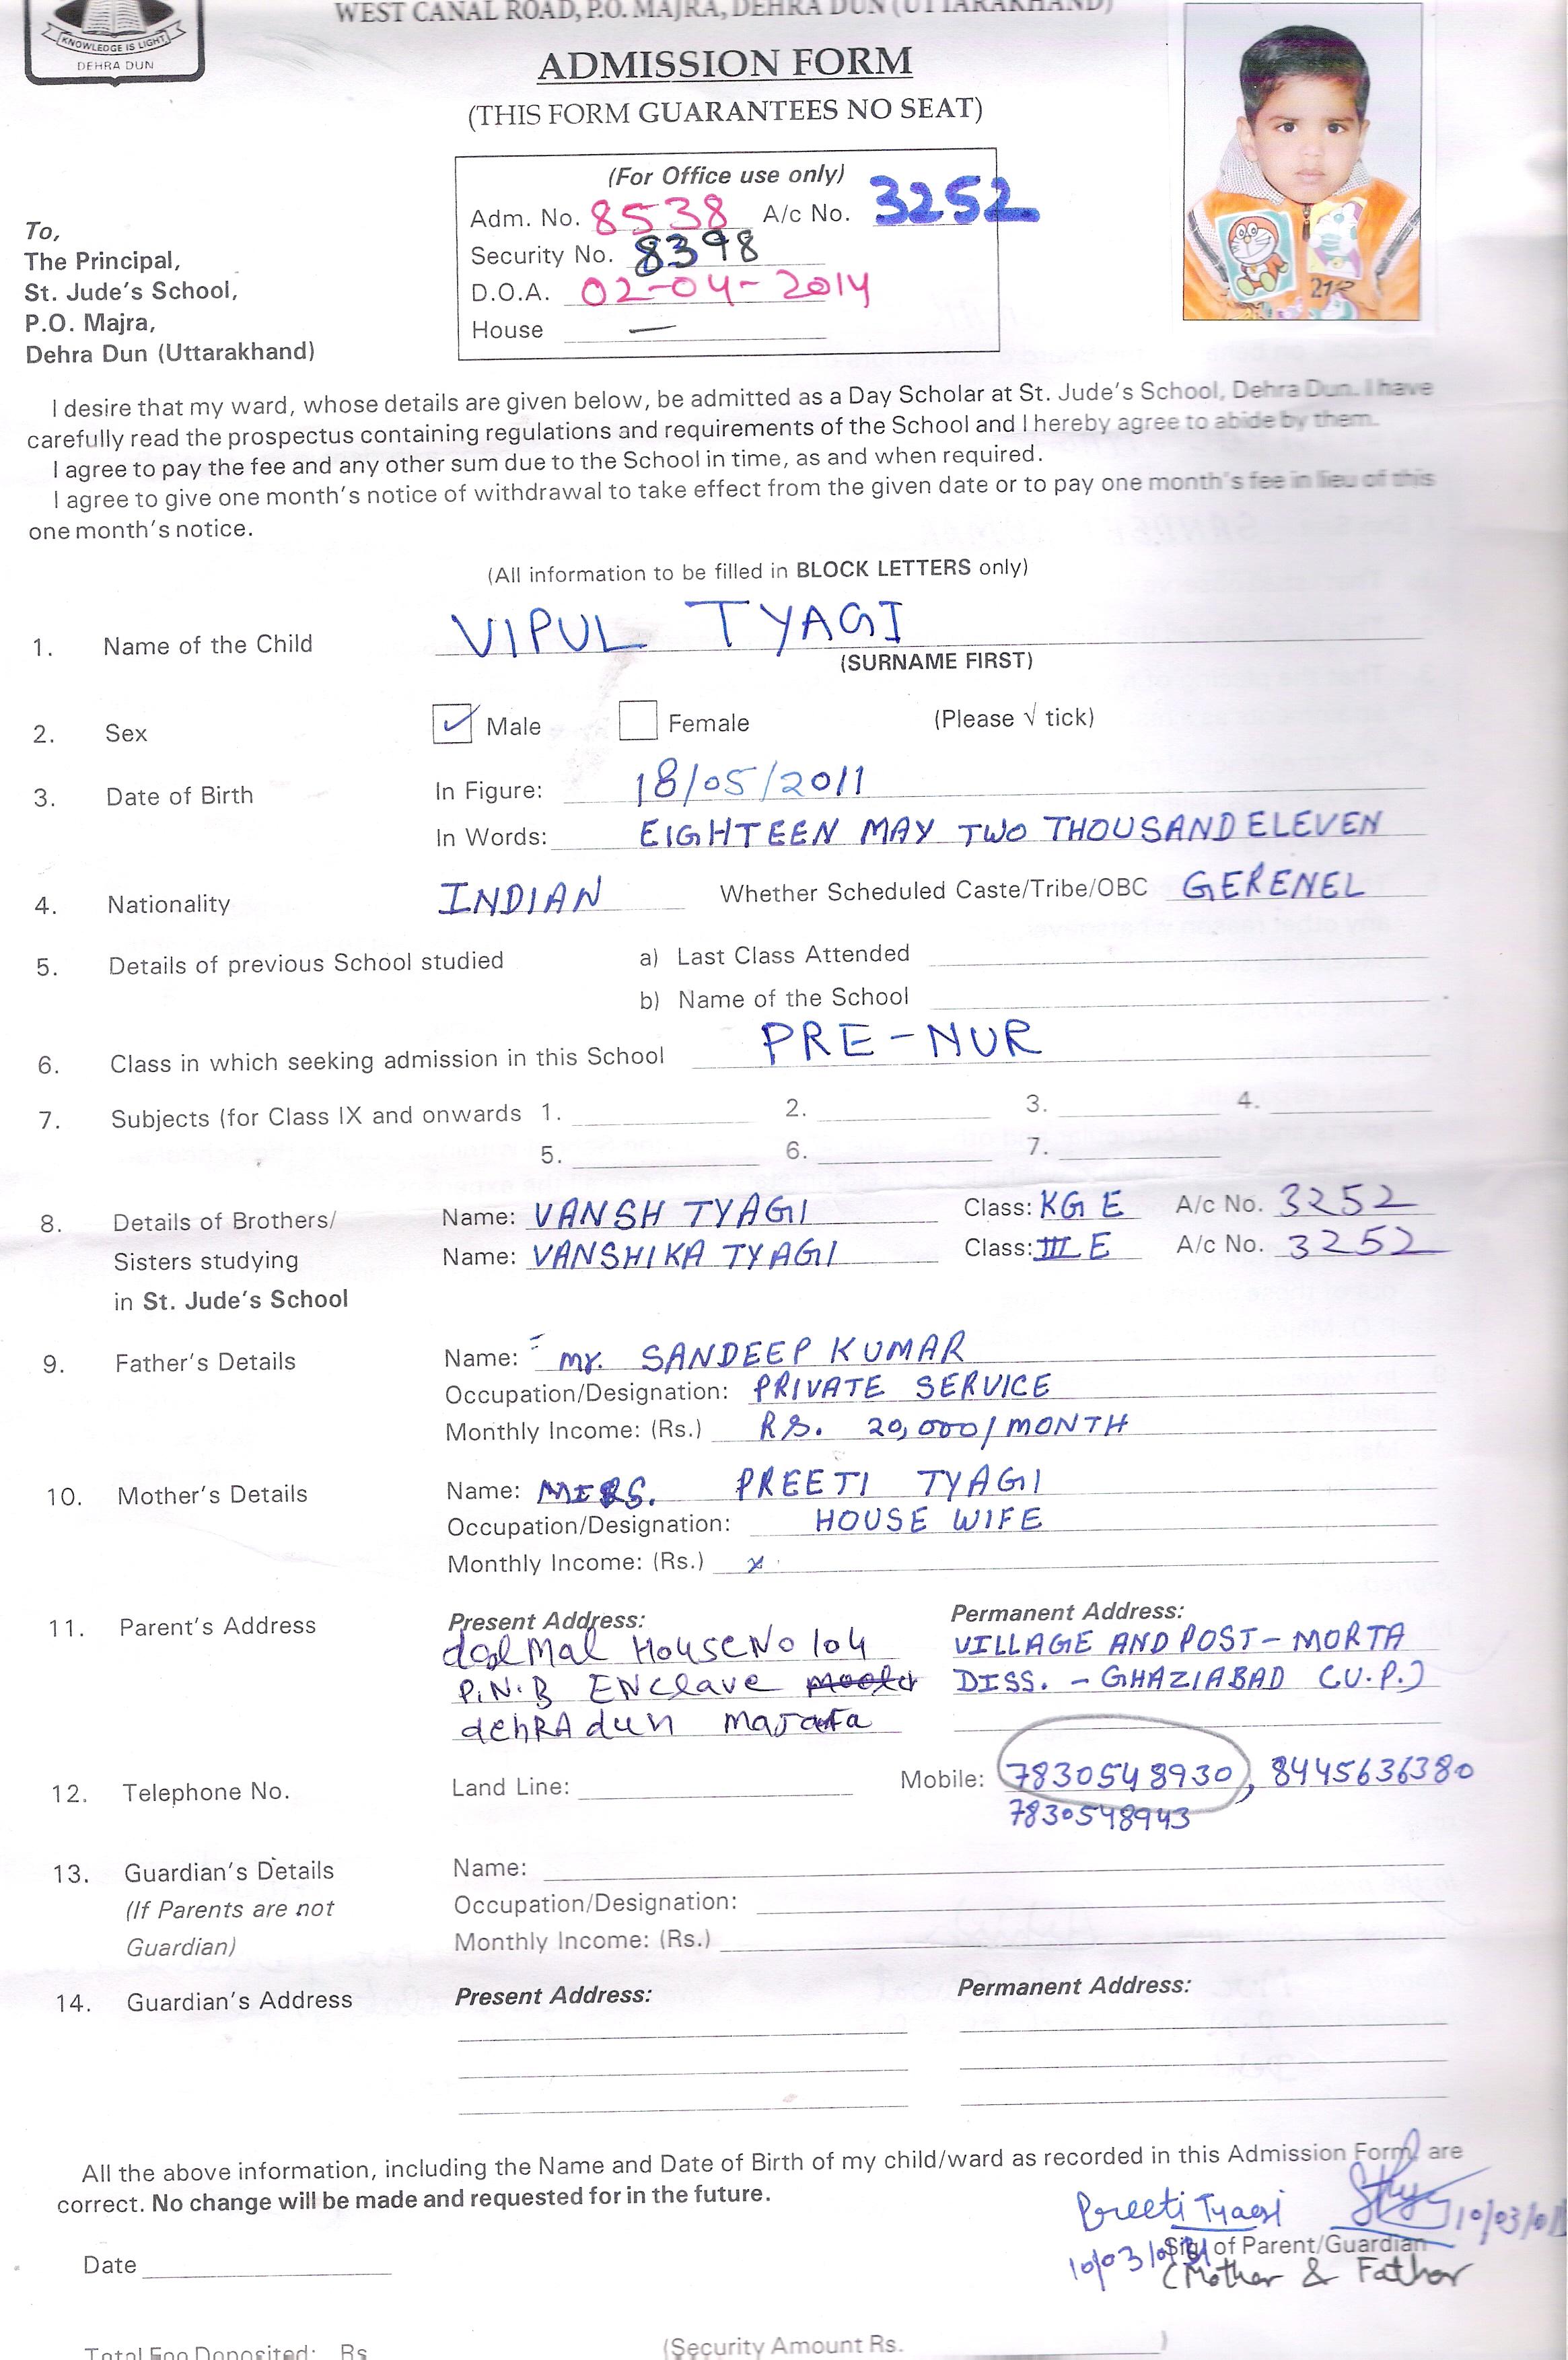 WEST CANAL ROAD, P.O. MAJRA, DEHRA DUN (UTTARAKHAND)
KNOWLEDGE IS LIGHT
DEHRA DUN
ADMISSION FORM
(THIS FORM GUARANTEES NO SEAT)
(For Office use only)
Adm. No. 8538 A/c No. 3252
Security No. 8398
D.O.A. 02-04-2014
House —
To,
The Principal,
St. Jude's School,
P.O. Majra,
Dehra Dun (Uttarakhand)
212
I desire that my ward, whose details are given below, be admitted as a Day Scholar at St. Jude's School, Dehra Dun. I have
carefully read the prospectus containing regulations and requirements of the School and I hereby agree to abide by them.
I agree to pay the fee and any other sum due to the School in time, as and when required.
I agree to give one month's notice of withdrawal to take effect from the given date or to pay one month's fee in lieu of this
one month's notice.
(All information to be filled in BLOCK LETTERS only)
1. Name of the Child VIPUL TYAGI
(SURNAME FIRST)
2. Sex ✓ Male Female (Please √ tick)
3. Date of Birth In Figure: 18/05/2011
In Words: EIGHTEEN MAY TWO THOUSAND ELEVEN
4. Nationality INDIAN Whether Scheduled Caste/Tribe/OBC GERENEL
5. Details of previous School studied a) Last Class Attended
b) Name of the School
6. Class in which seeking admission in this School PRE-NUR
7. Subjects (for Class IX and onwards 1. 2. 3. 4.
5. 6. 7.
8. Details of Brothers/ Name: VANSH TYAGI Class: KG E A/c No. 3252
Sisters studying Name: VANSHIKA TYAGI Class: III E A/c No. 3252
in St. Jude's School
9. Father's Details Name: Mr. SANDEEP KUMAR
Occupation/Designation: PRIVATE SERVICE
Monthly Income: (Rs.) RS. 20,000/MONTH
10. Mother's Details Name: PREETI TYAGI
Occupation/Designation: HOUSE WIFE
Monthly Income: (Rs.) x
11. Parent's Address Present Address: Permanent Address:
House No 104 VILLAGE AND POST-MORTA
P.N.B ENclave DISS. - GHAZIABAD (U.P.)
dehRAdun
12. Telephone No. Land Line: Mobile: 7830548930, 8445636380
7830548943
13. Guardian's Details Name:
(If Parents are not Occupation/Designation:
Guardian) Monthly Income: (Rs.)
14. Guardian's Address Present Address: Permanent Address:
All the above information, including the Name and Date of Birth of my child/ward as recorded in this Admission Form, are
correct. No change will be made and requested for in the future.
Preeti Tyagi
Date Sig. of Parent/Guardian
(Mother & Father
Total Fee Deposited: Rs (Security Amount Rs. )